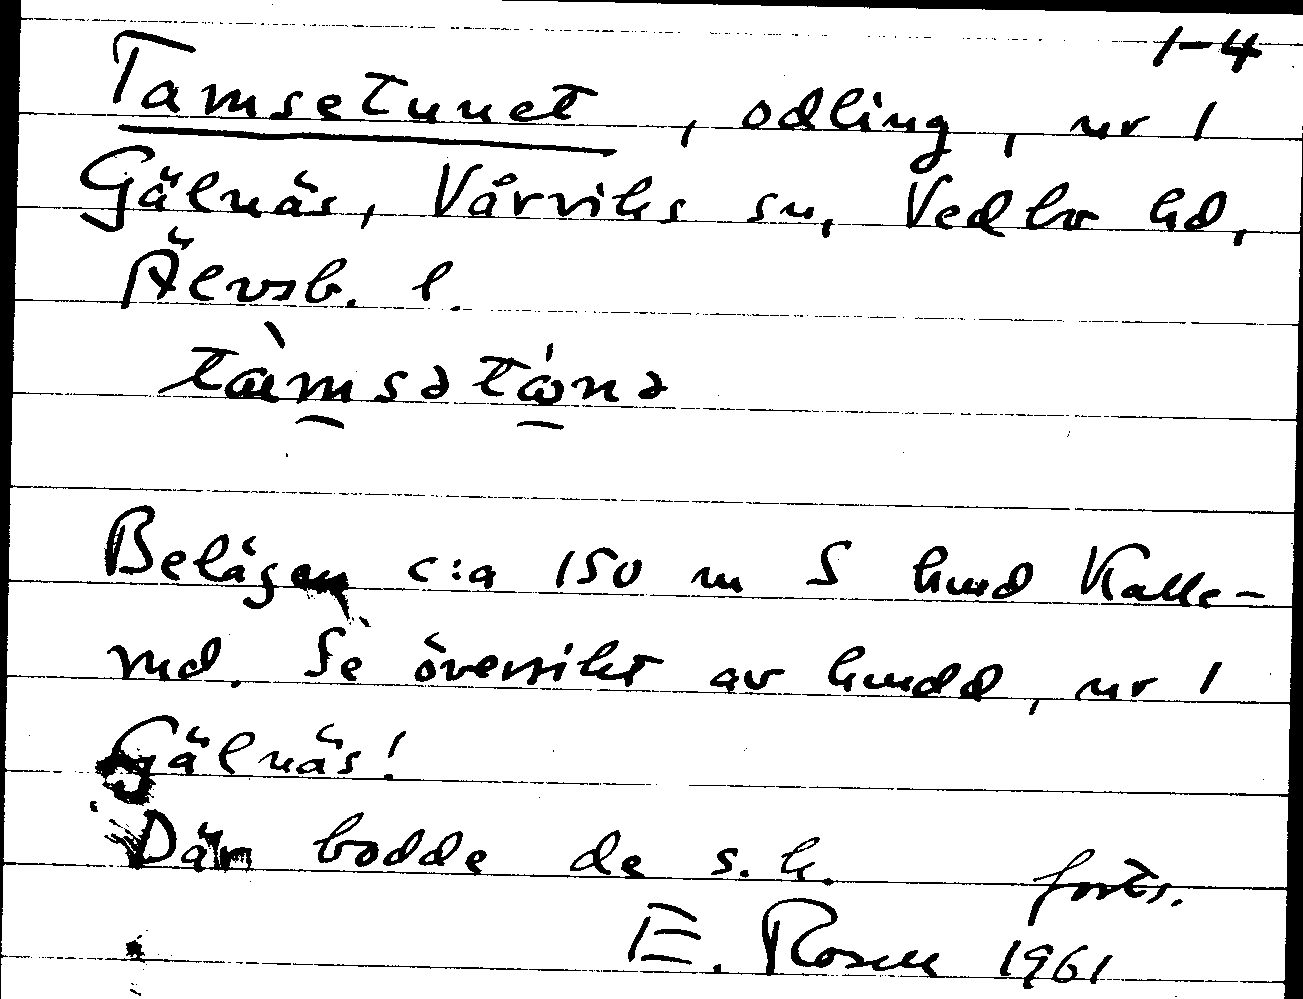 1-4
Tamsetunet, odling, nr 1
Gälnäs, Vårviks sn, Vedbo hd,
Älvsb. l.
tæ̀msətɷ́nə
Belägen c:a 150 m S hmd Kalle-
rud. Se översikt av hmdd, nr 1
Gälnäs!
Där bodde de s.k. forts.
E. Rosell 1961